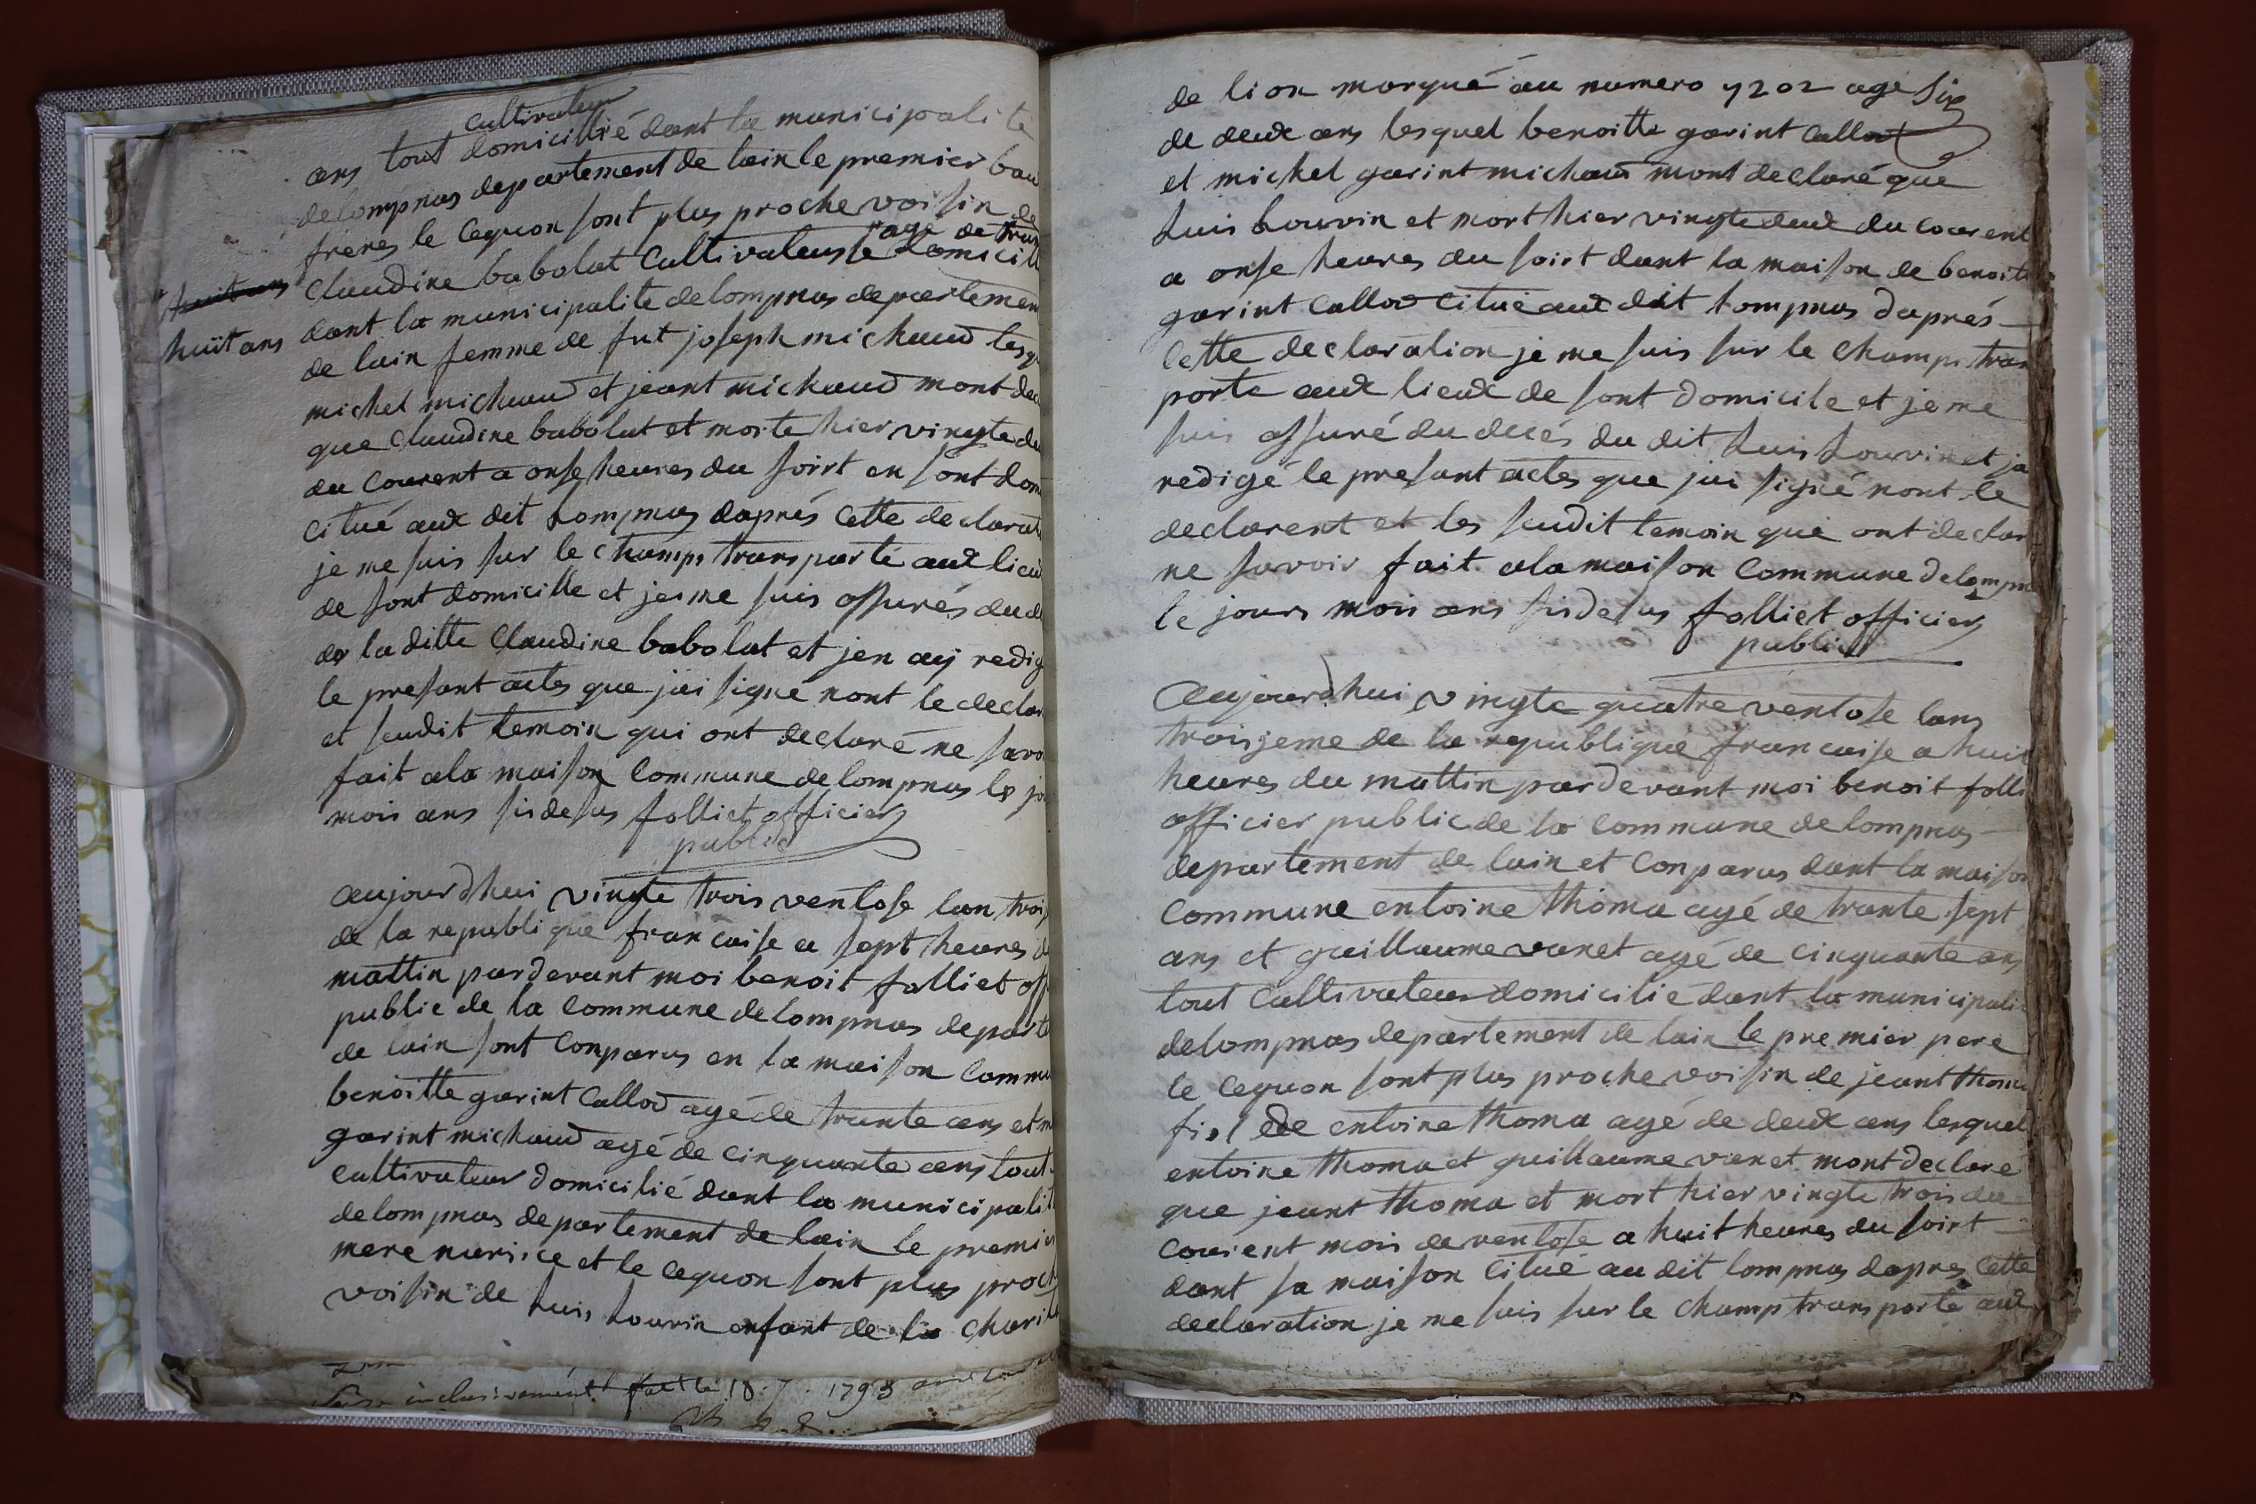 cultivateur
ans tout domicillié dant la municipalite
delompnas departement de lain le premier bau
freres le cequon sont plus proche voisin de
claudine babolat cultivateuse age de trus domicill
huit ans
huit ans
dant la municipalite delompnas departemen
de lain femme de fut joseph michaud lesq
michel michaud et jeant michaud mont dec
que claudine babolat et morte hier vingte du
du courent a onse heures du soirt en sont dom
citué aux dit Lompnas daprés cette declarat
je me suis sur le champs transporté aux lieu
de sont domicille et je me suis assurés du d
de la ditte claudine babolat et jen aÿ redig
le presant actes que jai signé nont le declar
et sudit temoin qui ont declaré ne savo
fait ala maison commune delompnas le jo
mois ans sidesus folliet officier
public
aujourdhui vingte trois ventose lan trois
de la republique francaise a sept heures d
mattin pardevant moi benoit folliet off
public de la commune delompnas departe
de lain sont conparus en la maison commu
benoitte garint callod agé de trante ans et m
garint michaud agé de cinquante ans tout
cultivateur domicilié dant la municipalit
delompnas departement de lain le premie
mere nurice et le cequon sont plus proch
voisin de luis Louvin enfant de la charit
inclusivement fait le 18. 7. 1793
de lion marqué au numero 7202 age Six
de deux ans lesquel benoitte garint callod
et michel garint michaud mont declaré que
Luis Louvin et mort hier vingte deux du courent
a onse heures du soirt dant la maison de benoite
garint callod citué aux dit Lompnas daprés
cette declaration je me suis sur le champs tran
porte aux lieux de sont domicile et je me
suis assuré du decés du dit Luis Louvin et ja
redigé le presant actes que jai signé nont le
declarent et les sudit temoin qui ont declar
ne savoir fait ala maison commune delompna
le jours mois ans sidesus folliet officier
public
Aujourdhui vingte quatre ventose lans
troisjeme de la republique francaise a huit
heures du mattin pardevant moi benoit folli
officier public de la commune delompnas
departement de lain et conparus dant la maison
commune entoine thoma agé de trante sept
ans et guillaume vanet agé de cinquante ans
tout cultivateur domicilié dant la municipali
delompnas departement de lain le premier pere
le cequon sont plus proche voisin de jeant thoma
fis ede entoine thoma agé de deux ans lesquel
entoine thoma et guillaume vanet mont declaré
que jeant thoma et mort hier vingte trois du
courent mois de ventose a huit heures du soirt
dant sa maison citué au dit lompnas dapres cette
declaration je me suis sur le champ transporté aux